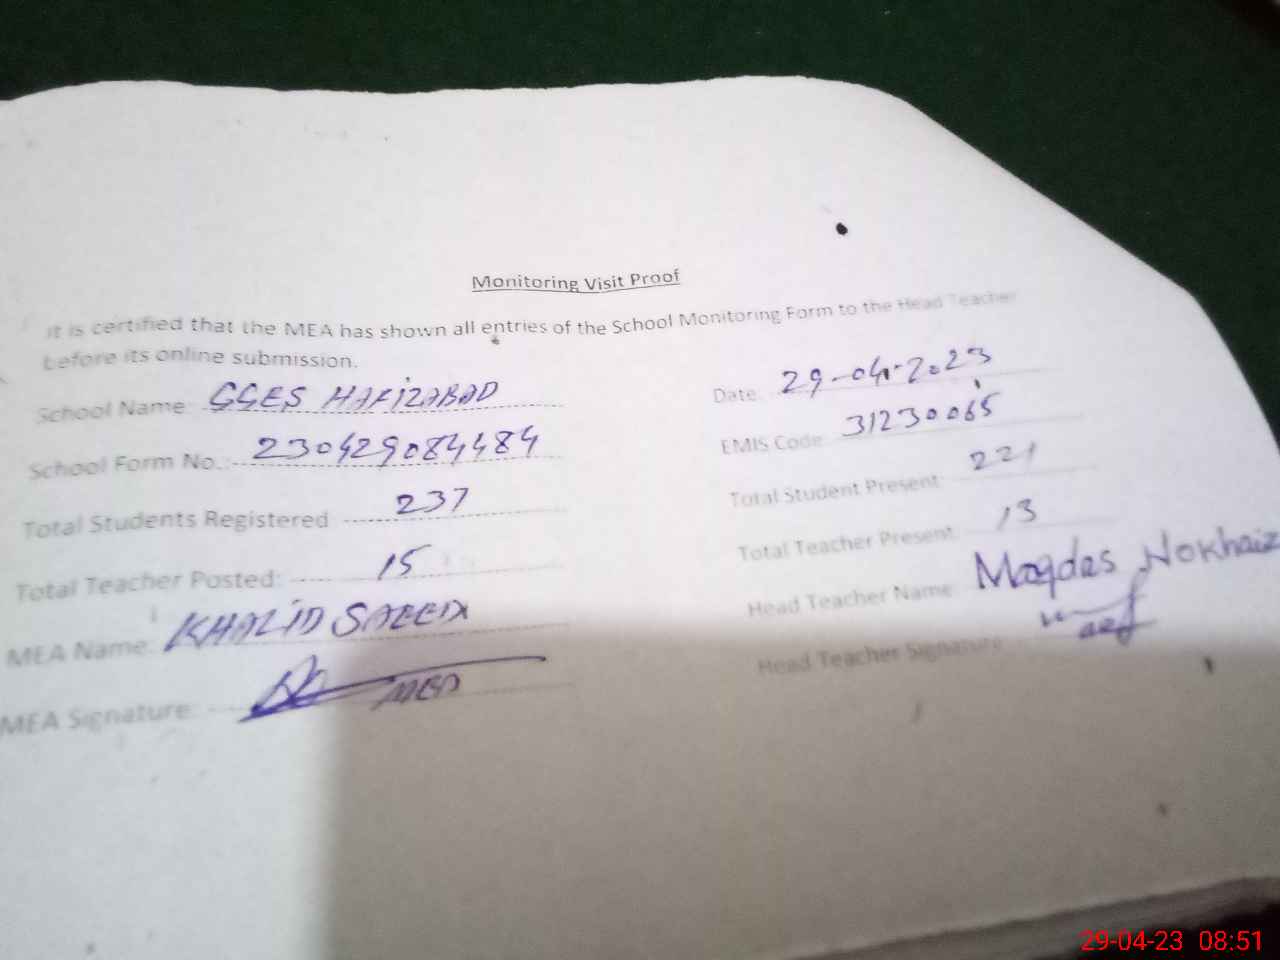 Monitoring Visit Proof
It is certified that the MEA has shown all entries of the School Monitoring Form to the Head Teacher
before its online submission.
School Name: GGES HAFIZABAD Date: 29-04-2023
School Form No.: 230429084484 EMIS Code: 31230065
Total Students Registered 237 Total Student Present: 221
Total Teacher Posted: 15 Total Teacher Present: 13
MEA Name: KHALID SAEED Head Teacher Name: Maqdas Nokhaiz
MEA Signature: Head Teacher Signature
29-04-23 08:51